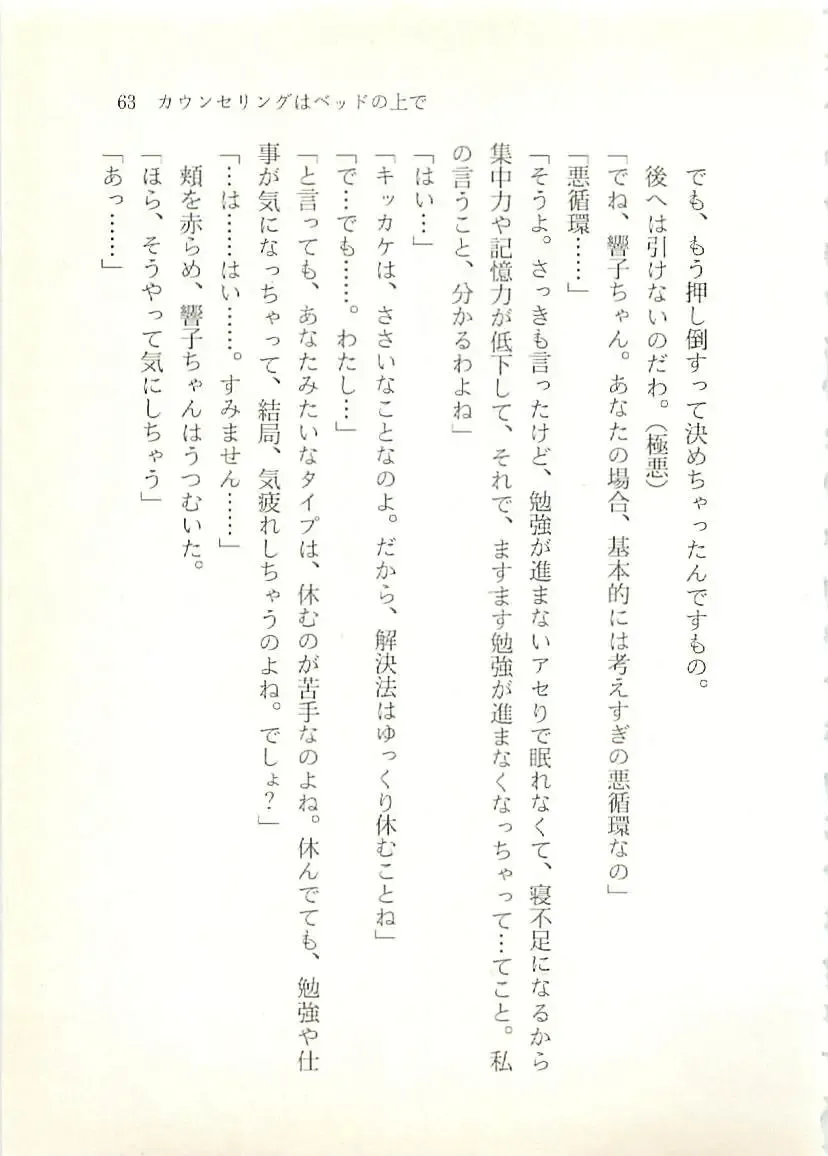 63 カウンセリングはベッドの上で
でも、もう押し倒すって決めちゃったんですもの。
後へは引けないのだわ。(極悪)
「でね、響子ちゃん。あなたの場合、基本的には考えすぎの悪循環なの」
「悪循環……」
「そうよ。さっきも言ったけど、勉強が進まないアセりで眠れなくて、寝不足になるから
集中力や記憶力が低下して、それで、ますます勉強が進まなくなっちゃって…てこと。私
の言うこと、分かるわよね」
「はい…」
「キッカケは、ささいなことなのよ。だから、解決法はゆっくり休むことね」
「で…でも……。わたし…」
「と言っても、あなたみたいなタイプは、休むのが苦手なのよね。休んでても、勉強や仕
事が気になっちゃって、結局、気疲れしちゃうのよね。でしょ？」
「…は……はい……。すみません……」
頬を赤らめ、響子ちゃんはうつむいた。
「ほら、そうやって気にしちゃう」
「あっ……」